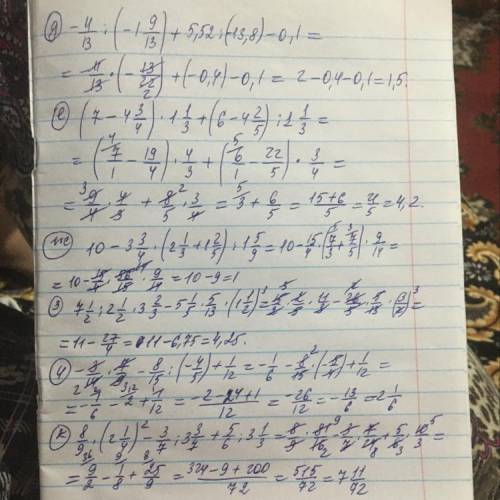 д) -4/13 : (-1 9/13) + 5,52 : (-13,8) - 0,1 =
= 4/13 · (-13/22) + (-0,4) - 0,1 = 2 - 0,4 - 0,1 = 1,5.
е) (7 - 4 3/4) · 1 1/3 + (6 - 4 2/5) : 1 1/3 =
= (7/1 - 19/4) · 4/3 + (6/1 - 22/5) · 3/4 =
= 9/4 · 4/3 + 8/5 · 3/4 = 5/3 + 6/5 = 15+6/5 = 21/5 = 4,2.
ж) 10 - 3 3/4 · (2 1/3 + 1 2/5) : 1 5/9 = 10 - 15/4 · (7/3 + 7/5) · 9/14 =
= 10 - 15/4 · 56/15 · 9/14 = 10 - 9 = 1
з) 7 1/2 : 2 1/2 · 3 2/3 - 5 1/5 · 5/13 · (1 1/2)³
= 11 - 27/4 = 11 - 6,75 = 4,25.
- 8/15 : (-4/5) + 1/12 = -1/6 - 8/15 · (-5/4) + 1/12 =
= -2-27+1/12 = -26/12 = -13/6 = 2 1/6
к) 8/9 · (2 1/4)² - 3/7 : 3 3/7 + 5/6 : 3 1/3 =
= 9/2 - 1/8 + 25/9 = 324-9+200/72 = 515/72 = 7 11/72